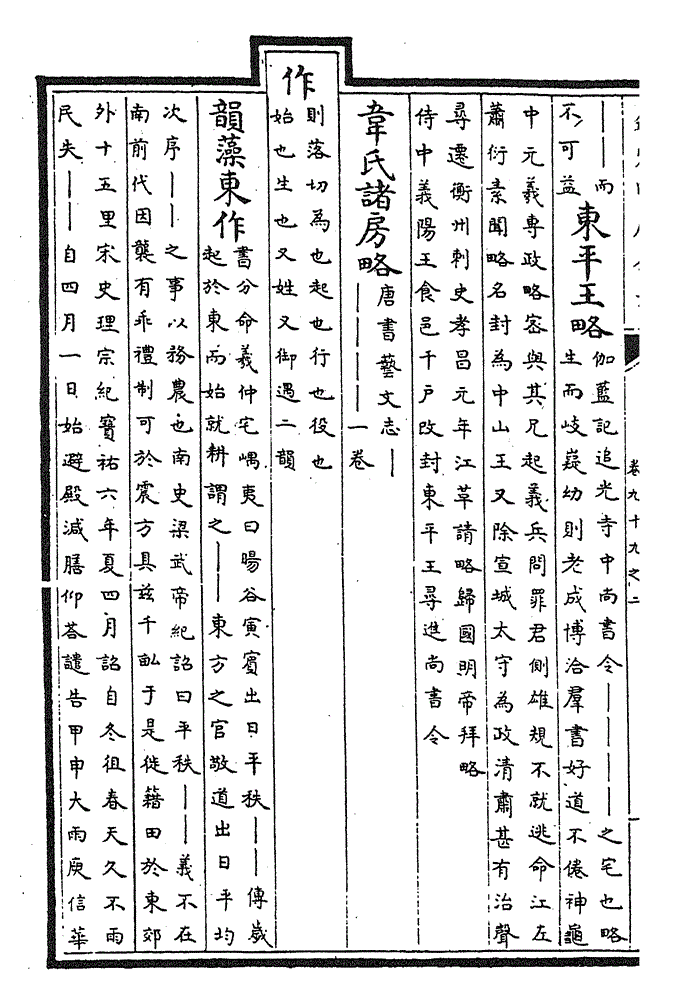 卷九十九之二
——而
不可益
東平王略
伽藍記追光寺中尚書令————之宅也略
生而岐嶷幼則老成博洽羣書好道不倦神龜
中元義專政略密與其兄起義兵問罪君側雄規不就逃命江左
蕭衍素聞略名封為中山王又除宣城太守為政清肅甚有治聲
尋遷衡州刺史孝昌元年江草請略歸國明帝拜略
侍中義陽王食邑千戶改封東平王尋進尚書令
韋氏諸房略
唐書藝文志—
————一卷
作
則落切為也起也行也役也
始也生也又姓又御遇二韻
韻藻東作
書分命羲仲宅嵎夷曰暘谷寅賓出日平秩——傳歲
起於東而始就耕謂之——東方之官敬道出日平均
次序——之事以務農也南史梁武帝紀詔曰平秩——義不在
南前代因襲有乖禮制可於震方具兹千畝于是徙藉田於東郊
外十五里宋史理宗紀寶祐六年夏四月詔自冬徂春天久不雨
民失——自四月一日始避殿減膳仰荅譴告甲申大雨庾信華